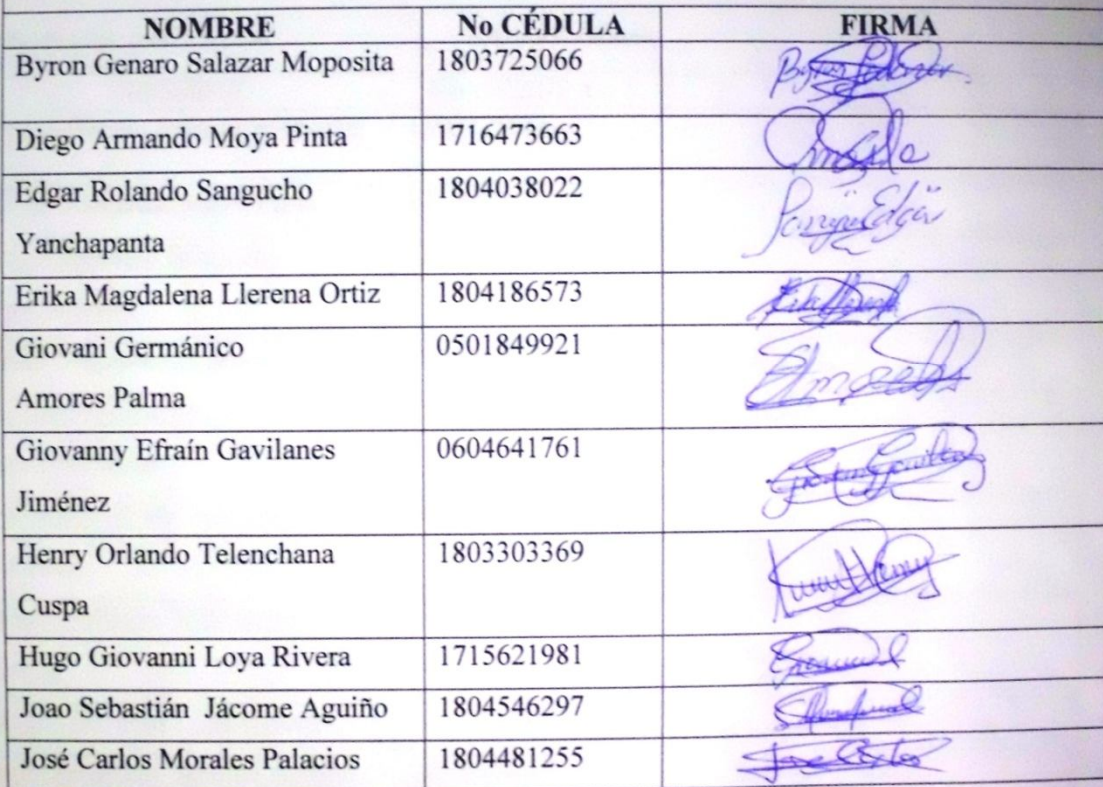 NOMBRE No CÉDULA FIRMA
Byron Genaro Salazar Moposita 1803725066
Diego Armando Moya Pinta 1716473663
Edgar Rolando Sangucho 1804038022
Yanchapanta
Erika Magdalena Llerena Ortiz 1804186573
Giovani Germánico 0501849921
Amores Palma
Giovanny Efraín Gavilanes 0604641761
Jiménez
Henry Orlando Telenchana 1803303369
Cuspa
Hugo Giovanni Loya Rivera 1715621981
Joao Sebastián Jácome Aguiño 1804546297
José Carlos Morales Palacios 1804481255